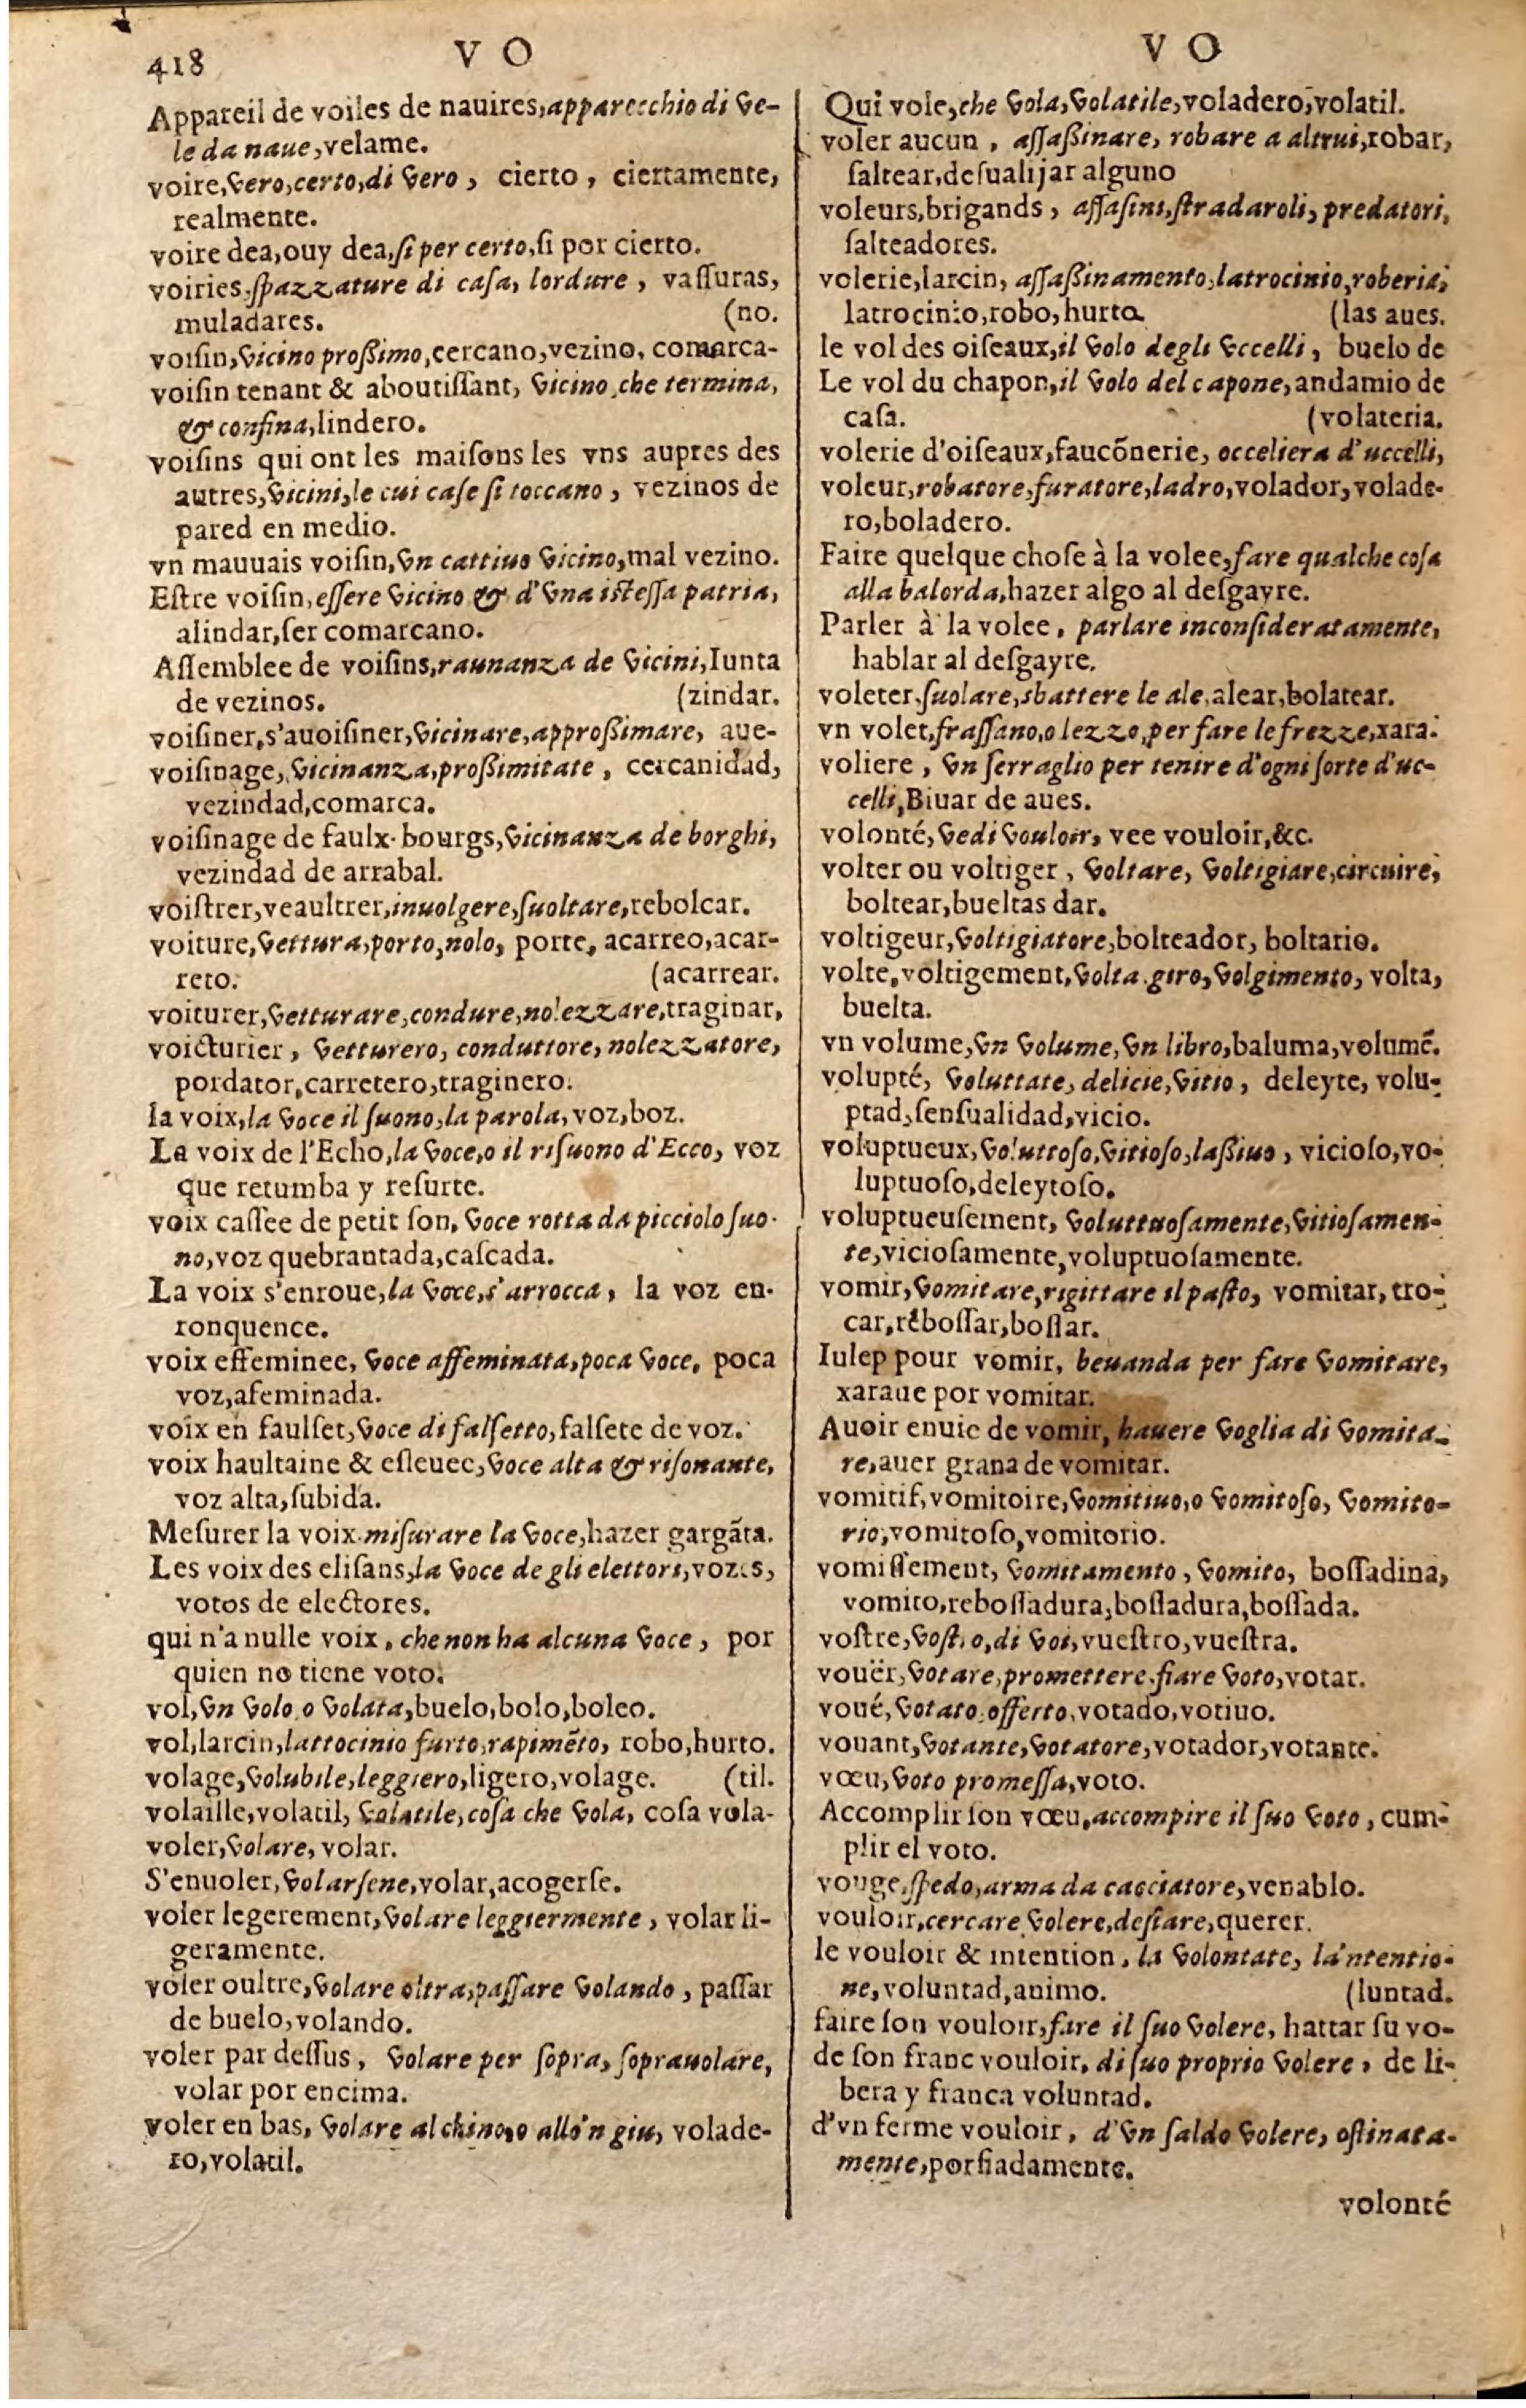 418
V O
Appareil de voiles de nauires, apparecchio di ve-
le da naue, velame.
voire, vero, certo, di vero, cierto, ciertamente,
realmente.
voire dea, ouy dea, ſi per certo, ſi por cierto.
voiries, ſpazzature di caſa, lordure, vaſſuras,
muladares. (no.
voiſin, vicino proßimo, cercano, vezino, comarca-
voiſin tenant & aboutiſſant, vicino, che termina,
& confina, lindero.
voiſins qui ont les maiſons les vns aupres des
autres, vicini, le cui caſe ſi toccano, vezinos de
pared en medio.
vn mauuais voiſin, vn cattiuo vicino, mal vezino.
Eſtre voiſin, eſſere vicino & d'vna iſteſſa patria,
alindar, ſer comarcano.
Aſſemblee de voiſins, raunanza de vicini, Iunta
de vezinos. (zindar.
voiſiner, s'auoiſiner, vicinare, approßimare, aue-
voiſinage, vicinanza, proßimitate, cercanidad,
vezindad, comarca.
voiſinage de faulx-bourgs, vicinanza de borghi,
vezindad de arrabal.
voiſtrer, veaultrer, inuolgere, ſuoltare, rebolcar.
voiture, vettura, porto, nolo, porte, acarreo, acar-
reto. (acarrear.
voiturer, vetturare, condure, nolezzare, traginar,
voicturier, vetturero, conduttore, nolezzatore,
pordator, carretero, traginero.
la voix, la voce il ſuono, la parola, voz, boz.
La voix de l'Echo, la voce, o il riſuono d'Ecco, voz
que retumba y reſurte.
voix caſſee de petit ſon, voce rotta da picciolo ſuo-
no, voz quebrantada, caſcada.
La voix s'enroue, la voce, s'arrocca, la voz en-
ronquence.
voix effeminee, voce affeminata, poca voce, poca
voz, afeminada.
voix en faulſet, voce di falſetto, falſete de voz.
voix haultaine & eſleuee, voce alta & riſonante,
voz alta, ſubida.
Meſurer la voix, miſurare la voce, hazer gargãta.
Les voix des eliſans, la voce de gli elettori, vozes,
votos de electores.
qui n'a nulle voix, che non ha alcuna voce, por
quien no tiene voto.
vol, vn volo, o volata, buelo, bolo, boleo.
vol, larcin, lattocinio furto, rapimẽto, robo, hurto.
volage, volubile, leggiero, ligero, volage. (til.
volaille, volatil, volatile, coſa che vola, coſa vola-
voler, volare, volar.
S'enuoler, volarſene, volar, acogerſe.
voler legerement, volare leggiermente, volar li-
geramente.
voler oultre, volare oltra, paſſare volando, paſſar
de buelo, volando.
voler par deſſus, volare per ſopra, ſoprauolare,
volar por encima.
voler en bas, volare al chino, o allo'n giu, volade-
ro, volatil.
V O
Qui vole, che vola, volatile, voladero, volatil.
voler aucun, aſſaßinare, robare a altrui, robar,
ſaltear, deſualijar alguno
voleurs, brigands, aſſaſini, ſtradaroli, predatori,
ſalteadores.
volerie, larcin, aſſaßinamento, latrocinio, roberia,
latrocinio, robo, hurto. (las aues.
le vol des oiſeaux, il volo degli vccelli, buelo de
Le vol du chapon, il volo del capone, andamio de
caſa. (volateria.
volerie d'oiſeaux, faucõnerie, occeliera d'uccelli,
voleur, robatore, furatore, ladro, volador, volade-
ro, boladero.
Faire quelque choſe à la volee, fare qualche coſa
alla balorda, hazer algo al deſgayre.
Parler à la volee, parlare inconſideratamente,
hablar al deſgayre.
voleter, ſuolare, sbattere le ale, alear, bolatear.
vn volet, fraſſano, o lezzo, per fare le frezze, xara.
voliere, vn ſerraglio per tenire d'ogni ſorte d'uc-
celli, Biuar de aues.
volonté, vedi vouloir, vee vouloir, &c.
volter ou voltiger, voltare, voltigiare, circuire,
boltear, bueltas dar.
voltigeur, voltigiatore, bolteador, boltario.
volte, voltigement, volta, giro, volgimento, volta,
buelta.
vn volume, vn volume, vn libro, baluma, volumẽ.
volupté, voluttate, delicie, vitio, deleyte, volu-
ptad, ſenſualidad, vicio.
voluptueux, voluttoſo, vitioſo, laßiuo, vicioſo, vo-
luptuoſo, deleytoſo.
voluptueuſement, voluttuoſamente, vitioſamen-
te, vicioſamente, voluptuoſamente.
vomir, vomitare, rigittare il paſto, vomitar, tro-
car, reboſſar, boſſar.
Iulep pour vomir, beuanda per fare vomitare,
xaraue por vomitar.
Auoir enuie de vomir, hauere voglia di vomita-
re, auer grana de vomitar.
vomitif, vomitoire, vomitiuo, o vomitoſo, vomito-
rio, vomitoſo, vomitorio.
vomiſſement, vomitamento, vomito, boſſadina,
vomito, reboſſadura, boſſadura, boſſada.
voſtre, voſtro, di voi, vueſtro, vueſtra.
vouër, votare, promettere, fiare voto, votar.
voué, votato, offerto, votado, votiuo.
vouant, votante, votatore, votador, votante.
vœu, voto promeſſa, voto.
Accomplir ſon vœu, accompire il ſuo voto, cum-
plir el voto.
vouge, ſpedo, arma da cacciatore, venablo.
vouloir, cercare volere, deſiare, querer.
le vouloir & intention, la volontate, la'ntentio-
ne, voluntad, animo. (luntad.
faire ſon vouloir, fare il ſuo volere, hattar ſu vo-
de ſon franc vouloir, di ſuo proprio volere, de li-
bera y franca voluntad.
d'vn ferme vouloir, d'vn ſaldo volere, oſtinata-
mente, porfiadamente.
volonté